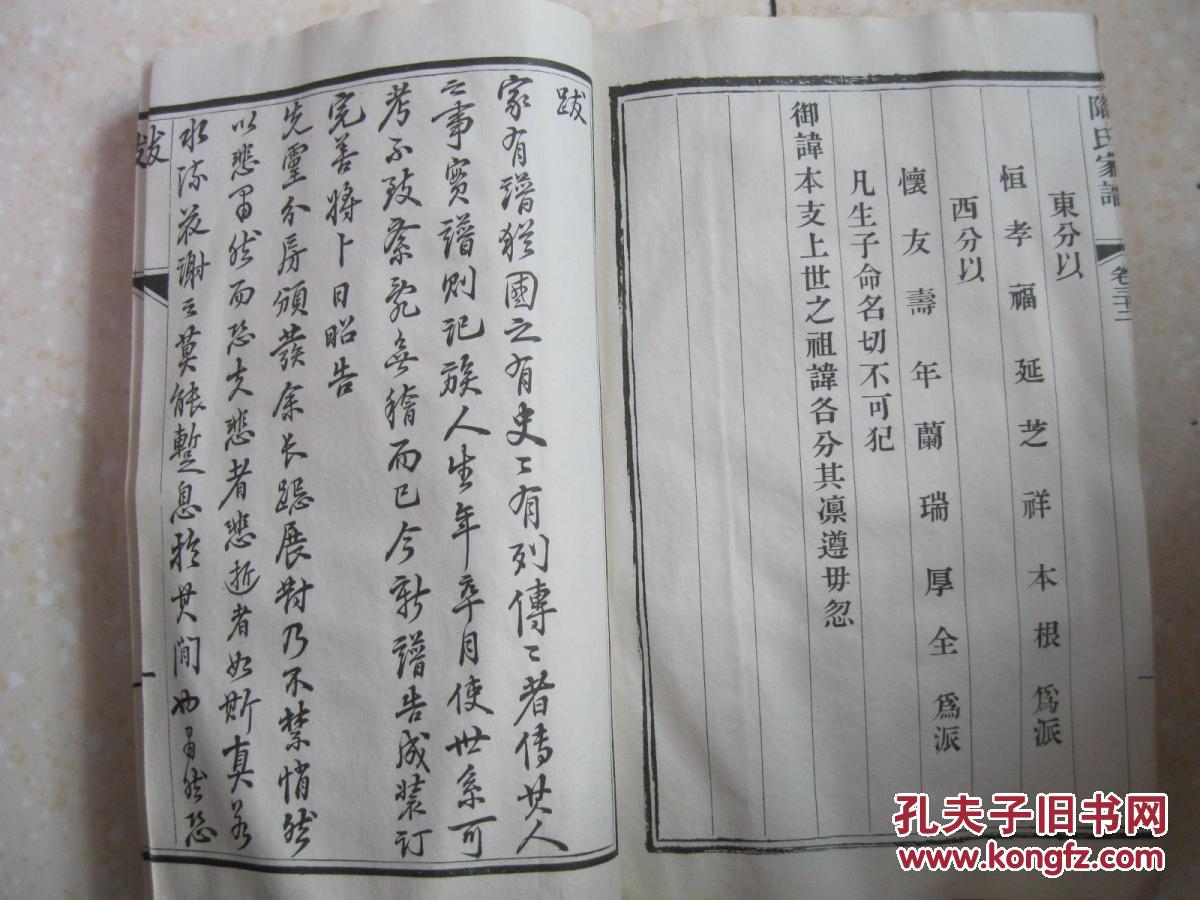 陶氏家譜
卷三十二
東分以
恒孝福延芝祥本根爲派
西分以
懷友壽年蘭瑞厚全爲派
凡生子命名切不可犯
御諱本支上世之祖諱各分其凛遵毋忽
跋
家有譜猶國之有史〻有列傳〻者傳其人
之事實譜則記族人生年卒月使世系可
考不致紊亂無稽而已今新譜告成裝訂
完善將卜日昭告
先靈分房頒發余长跽展對乃不禁悄然
以悲胃然而恐夫悲者悲逝者如斯真若
水流花謝之莫能暫息於其間也胃然恐
跋
孔夫子旧书网
www.kongfz.com